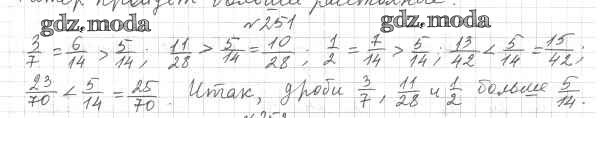 катер пройдет большее расстояние.
gdz.moda №251 gdz.moda
3/7 = 6/14 > 5/14; 11/28 > 5/14 = 10/28; 1/2 = 7/14 > 5/14; 13/42 < 5/14 = 15/42;
23/70 < 5/14 = 25/70. Итак, дроби 3/7, 11/28 и 1/2 больше 5/14.